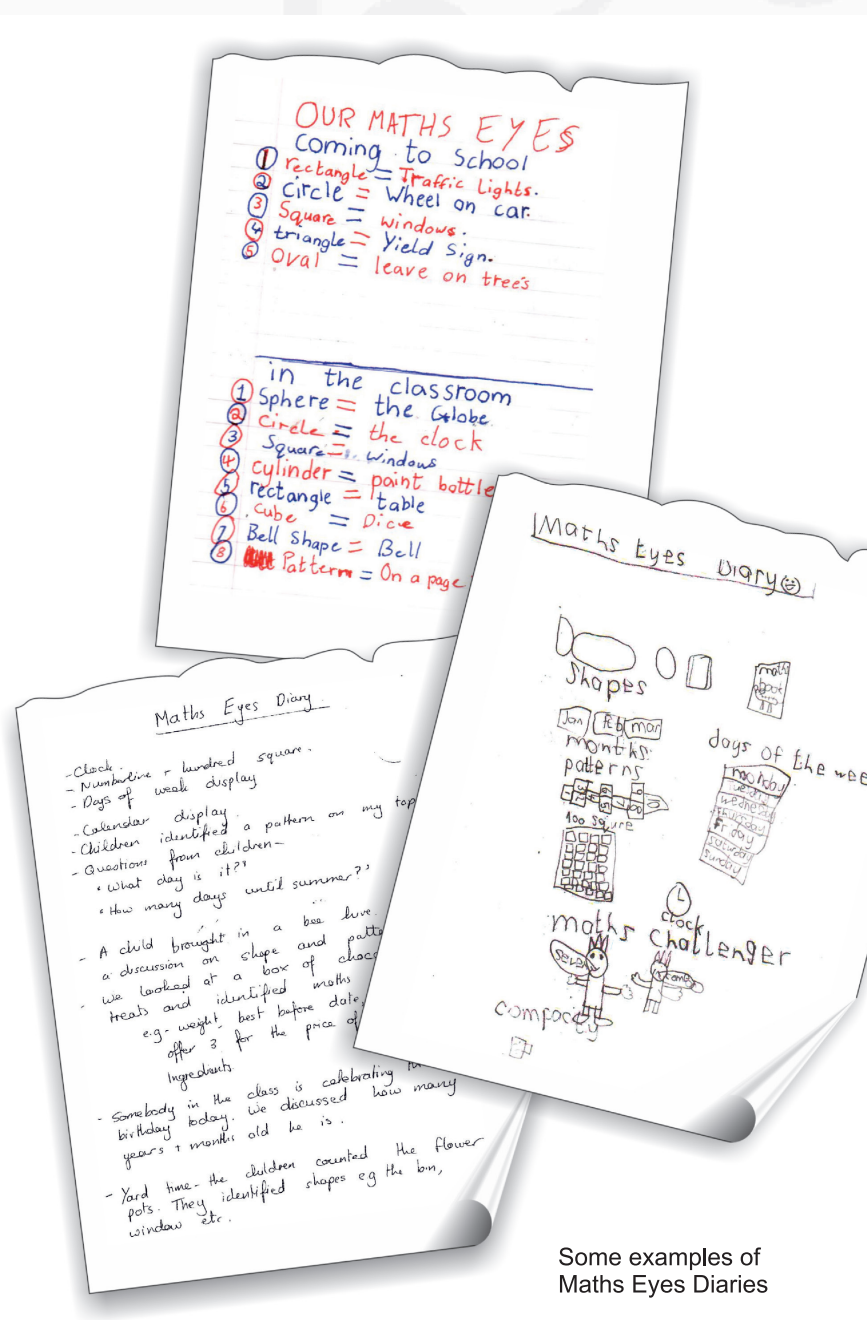 OUR MATHS EYES
Coming to School
1 rectangle = Traffic Lights.
2 circle = Wheel on car.
3 Square = windows.
4 triangle = Yield Sign.
5 Oval = leave on trees
in the classroom
1 Sphere = the Globe
2 Circle = the clock
3 Square = windows
4 cylinder = paint bottle
5 rectangle = table
6 cube = Dice
7 Bell Shape = Bell
8 Pattern = On a page
Maths Eyes Diary
- Clock.
- Numberline + hundred square.
- Days of week display
- Calendar display.
- Children identified a pattern on my top
- Questions from children -
"What day is it?"
"How many days until summer?"
- A child brought in a bee hive.
a discussion on shape and
- We looked at a box of
treats and identified maths
e.g - weight, best before date,
offer 3 for the price of
Ingredients.
- Somebody in the class is celebrating
birthday today. We discussed how many
years + months old he is.
- Yard time - the children counted the flower
pots. They identified shapes eg the bin,
window etc.
Maths Eyes Diary
Shapes
maths
book
Jan Feb mar
months
patterns
days of the
100 Squre
clock
maths challenger
Some examples of
Maths Eyes Diaries